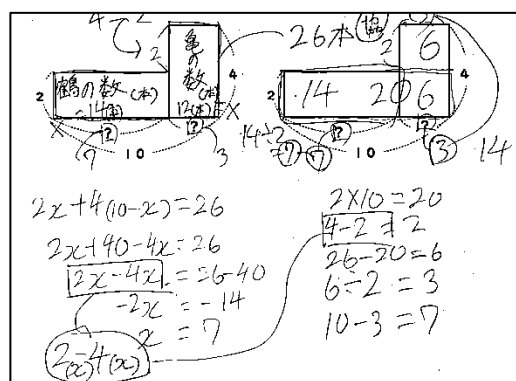 4 2
2 鶴の数(本)
14(本)
亀の数(本)
12(本)
26本
4
x
7
10
3
協
2
6
2
14 20 6
4
14÷2
=7 7
10
3 14
2x+4(10-x)=26
2x+40-4x=26
2x-4x=26-40
-2x=-14
x=7
2(x)-4(x)
2×10=20
4-2=2
26-20=6
6÷2=3
10-3=7